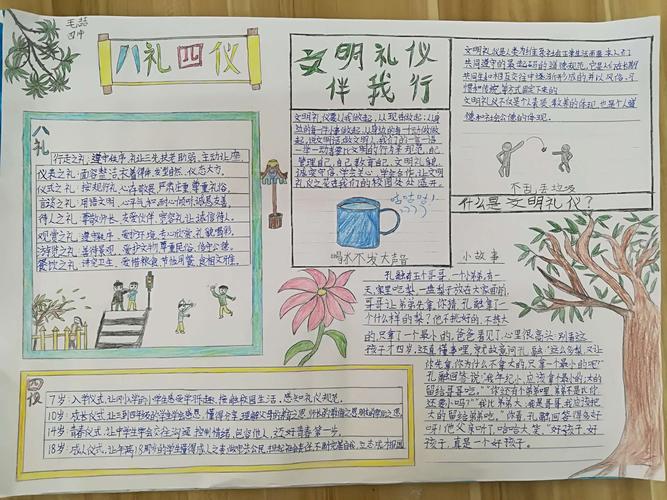 毛喆
四中
八礼四仪
文明礼仪
伴我行
八礼
行走之礼：遵守秩序，礼让三先，扶老助弱，主动让座。
仪表之礼：面容整洁，衣着得体，发型自然，仪态大方。
仪式之礼：按规行礼，心存敬畏，严肃庄重，尊重礼俗。
言谈之礼：用语文明，心平气和，耐心倾听，诚恳友善。
待人之礼：尊敬师长，友爱伙伴，宽容礼让，诚信待人。
观赏之礼：遵守秩序，爱护环境，专心欣赏，礼貌喝彩。
游览之礼：善待景观，爱护文物，尊重民俗，恪守公德。
餐饮之礼：讲究卫生，爱惜粮食，节俭用餐，食相文雅。
文明礼仪要从我做起，从现在做起；从身
管理自己，自己教育自己，文明礼貌，
诚实守信，学会关心，学会合作，让文明
礼仪之花在我们的校园处处盛开。
咕咕咕！
喝水不发大声音
文明礼仪是人类为维系社会正常生活而要求人们
共同遵守的最起码的道德规范，它是人们在长期
共同生活和相互交往中逐渐形成的，并以风俗、习
惯和传统等方式固定下来的
文明礼仪不仅是个人素质、教养的体现，也是个人道
德和社会公德的体现。
不乱丢垃圾
什么是文明礼仪？
小故事
孔融有五个哥哥，一个小弟弟，有一
天，家里吃梨。一盘梨放在大家面前，
哥哥让弟弟先拿。你猜，孔融拿了一
个什么样的梨？他不挑好的，不拣大
的，只拿了一个最小的。爸爸看见了，心里很高兴：别看这
孩子才四岁，还真懂事哩。就故意问孔融：“这么多梨，又让
你先拿，你为什么不拿大的，只拿一个最小的呢？”
孔融回答说：“我年纪小，应该拿个最小的；大的
留给哥哥吃。”“你还有个弟弟哩，弟弟不是比你
还要小吗？”“我比弟弟大，我是哥哥，我应该把
大的留给弟弟吃。”你看，孔融回答得多好
呀！他父亲听了，哈哈大笑：“好孩子，好
孩子，真是一个好孩子。
四仪
7岁：入学仪式，让刚入学的小学生感受学习乐趣，接触校园生活，感知礼仪规范。
10岁：成长仪式，让三到四年级的学生学会感恩，懂得分享，理解父母的养育之恩、师长的教诲之恩、朋友的帮助之恩。
14岁：青春仪式，让中学生学会交往沟通，控制情绪，包容他人，迈好青春第一步。
18岁：成人仪式，让年满18周岁的学生懂得成人之责，做守法公民，担起社会责任，不断完善自我，立志成才报国